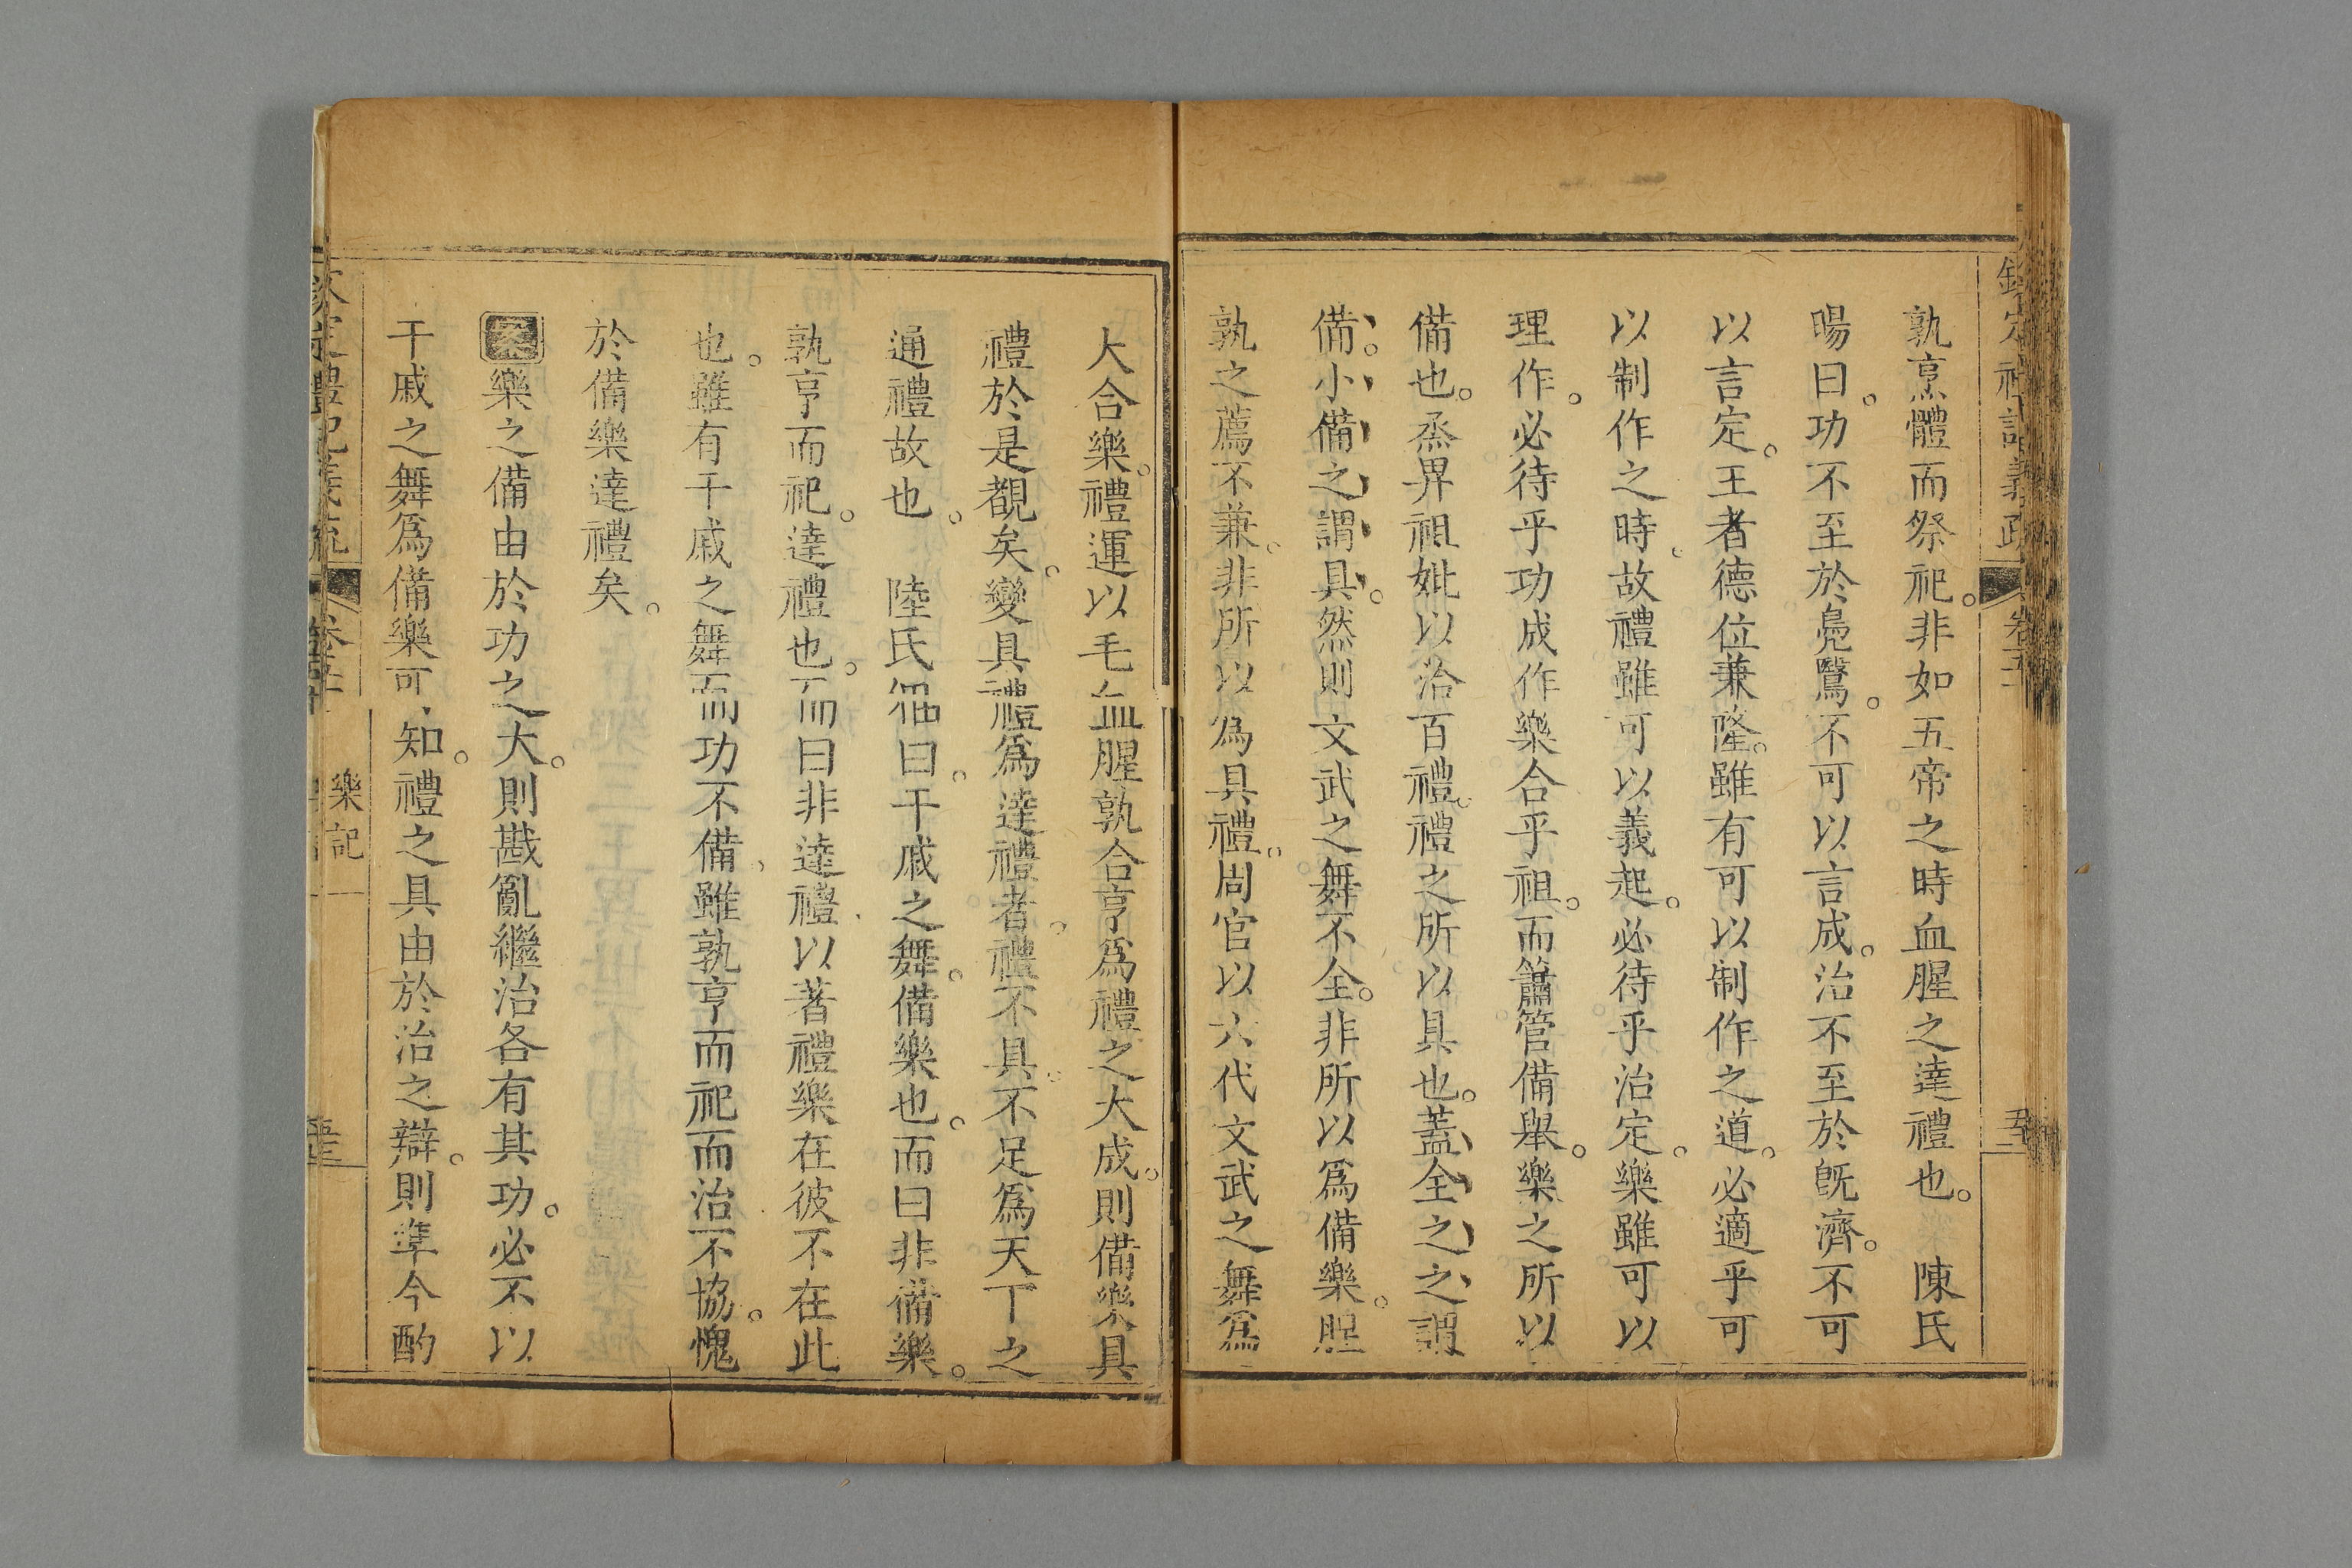 孰烹體而祭祀。非如五帝之時血腥之達禮也。 陳氏
暘曰。功不至於鳧鷖。不可以言成。治不至於旣濟。不可
以言定。王者德位兼隆。雖有可以制作之道。必適乎可
以制作之時。故禮雖可以義起。必待乎治定。樂雖可以
理作。必待乎功成。作樂合乎祖。而簫管備舉。樂之所以
備也。烝畀祖妣以洽百禮。禮之所以具也。蓋全之之謂
備。小備之謂具。然則文武之舞不全。非所以爲備樂。腥
孰之薦不兼。非所以爲具禮。周官以六代文武之舞爲
大合樂。禮運以毛血腥孰合亨爲禮之大成。則備樂具
禮於是覩矣。變具禮爲達禮者。禮不具。不足爲天下之
通禮故也。 陸氏佃曰。干戚之舞。備樂也。而曰非備樂。
孰亨而祀。達禮也。而曰非達禮。以著禮樂在彼不在此
也。雖有干戚之舞而功不備、雖孰亨而祀而治不協。愧
於備樂達禮矣。
案樂之備由於功之大。則戡亂繼治各有其功。必不以
干戚之舞爲備樂可知。禮之具由於治之辯。則準今酌
欽定禮記義疏 樂記